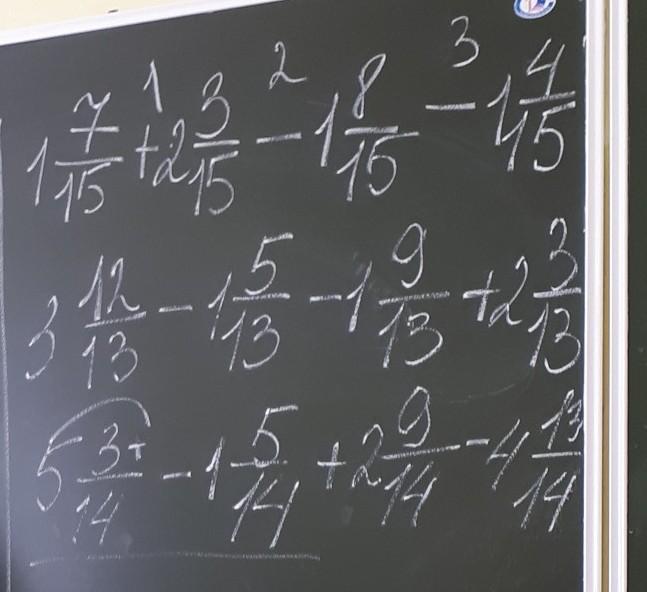 1 2 3
1 7/15 + 2 3/15 - 1 8/15 - 1 4/15
3 12/13 - 1 5/13 - 1 9/13 + 2 3/13
5 3/14 - 1 5/14 + 2 9/14 - 4 13/14